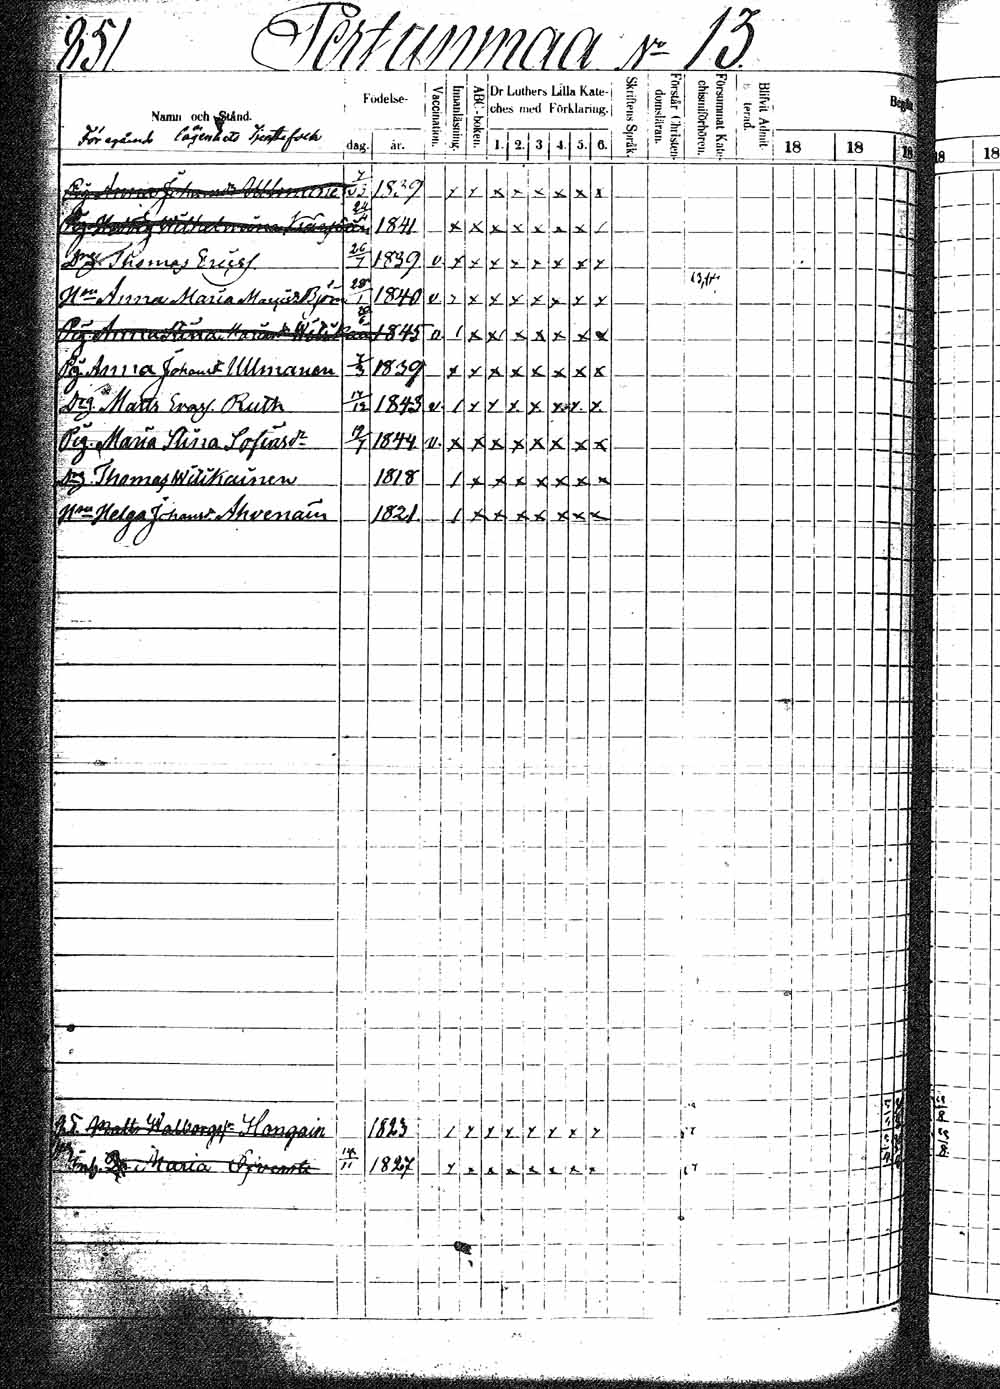 251 Pertunmaa No 13.
Namn och Stånd.
Föregående Lägenhets Tjenstefolk
Födelse-
dag. år.
Vaccination.
Innanläsning.
ABC-boken.
Dr Luthers Lilla Kate-
ches med Förklaring.
1. 2. 3 4. 5. 6.
Skriftens Språk.
Förstår Christen-
domsläran.
Försummat Kate-
chismiförhören.
Blifvit Admit-
terad.
Begått
18 18 18 18 18
Pig. Anna Johansdr Ullmanen 7/3 1839 x x x x x x x x
Pig. Hedvig Wilhelmina 1841 x x x x x x x x
Drg Thomas Ericss. 26/7 1839 v. x x x x x x x x
Hu Anna Maria 28/1 1840 v. x x x x x x x x
Pig. Anna Stina Wilikain 1845 v. / x x x x x x x
Pig. Anna Johansdr Ullmanen 7/3 1839 x x x x x x x x
Drg. Matts Evass. Ruth 17/12 1843 v. / x x x x x x x
Pig. Maria Stina Sofiasdr 1844 v. x x x x x x x x
Drg. Thomas Wilikainen 1818 / x x x x x x x
Hu Helga Johansdr Ahvenain 1821 / x x x x x x x
Matts Walborgss. Hangain 1823 / x x x x x x x
Maria 14/11 1827 x x x x x x x x